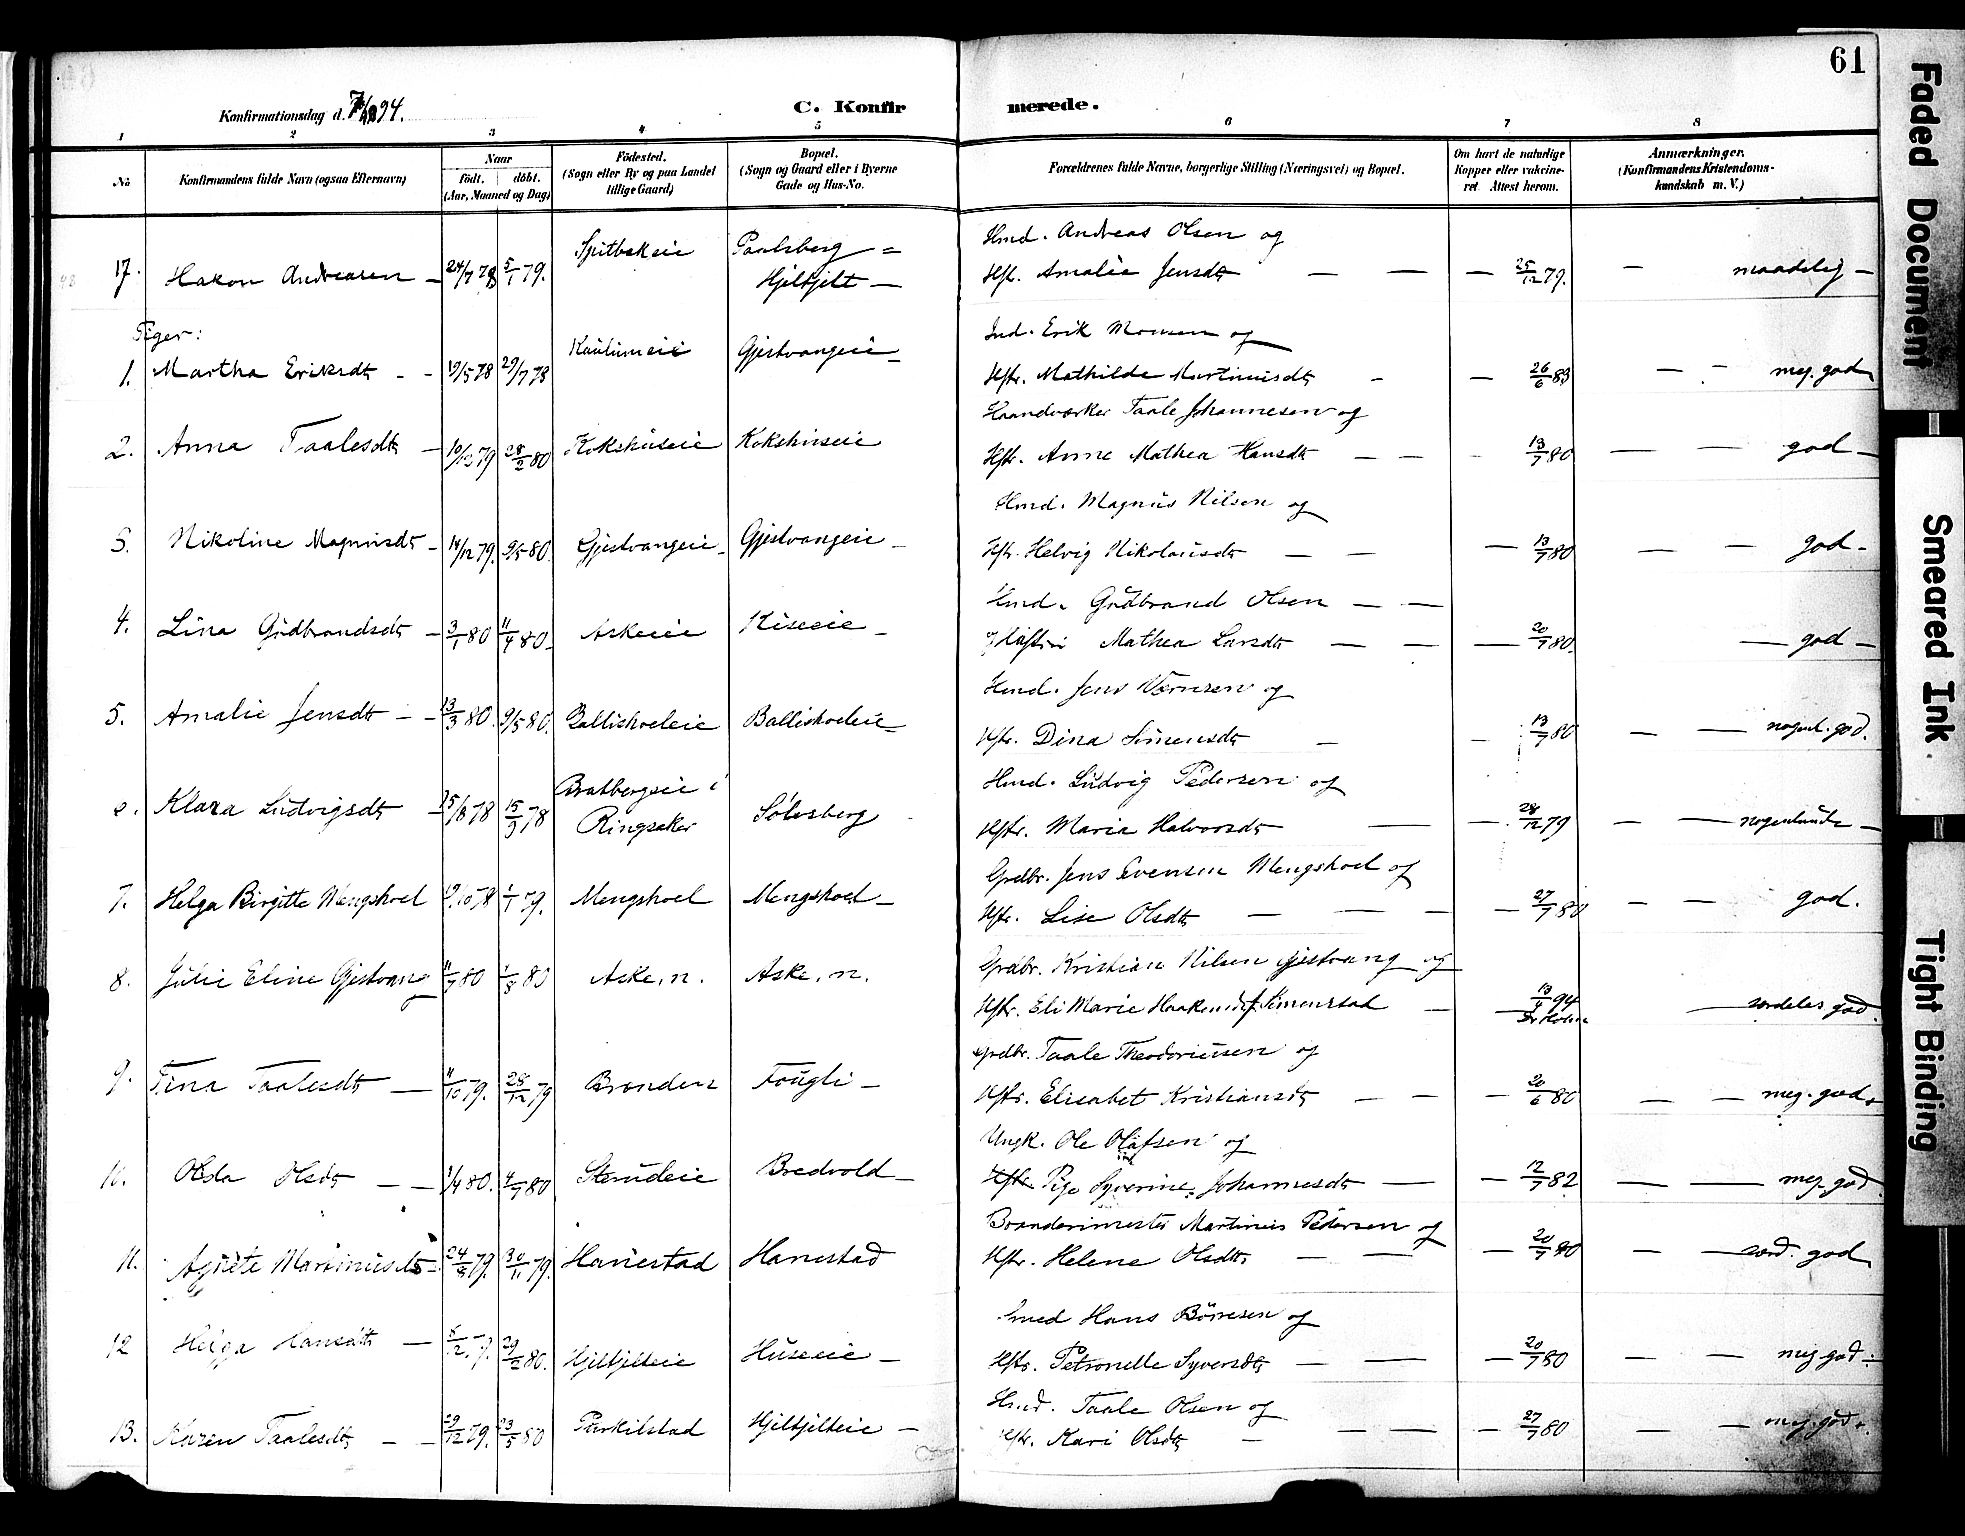 61
Konfirmationsdag d. 7/10 94.
C. Konfirmerede.
1 2 3 4 5 6 7 8
No
Konfirmandens fulde Navn (ogsaa Efternavn)
Naar
födt. döbt.
(Aar, Maaned og Dag)
Födested.
(Sogn eller By og paa Landet
tillige Gaard)
Bopæl.
(Sogn og Gaard eller i Byerne
Gade og Hus-No.
Forældrenes fulde Navne, borgerlige Stilling (Næringsvei) og Bopæl.
Om havt de naturlige
Kopper eller vakcine-
ret Attest herom.
Anmærkninger.
(Konfirmandens Kristendoms-
kundskab m. V.)
Hmd. Andreas Olsen og
17. Hakon Andreasen 24/7 78 5/1 79. Paalsberg =
Hjelkjelt
Hfr. Amalie Jensdtr 25/12 79. maadelig
Piger:
1. Martha Eriksdtr 19/5 78 29/7 78 Gjestvangeie
Ind. Erik Monsen og
Hfr. Mathilde Martinusdtr 26/6 83 meg. god
2. Anna Taalesdtr 10/12 79 28/2 80 Kokshuseie Kokshuseie
Haandværker Taale Johannesen og
Hfr. Anne Mathea Hansdtr 13/7 80 god
3. Nikoline Magnusdtr 14/12 79. 9/5 80. Gjestvangeie Gjestvangeie
Hmd. Magnus Nilsen og
Hfr. Helvig Nikolausdtr 13/7 80 god
4. Lina Gudbrandsdtr 3/1 80 11/4 80 Askeeie Kiseeie
Hmd. Gudbrand Olsen
og Hustru Mathea Larsdtr 20/7 80. god
5. Amalie Jensdtr 13/3 80. 9/5 80. Balliskoeleie Balliskoeleie
Hmd. JensVærnsen og
Hfr. Dina Simensdtr 13/7 80 nogenl. god.
Klara Ludvigsdtr 25/8 78 15/9 78 Bratbergseie i
Ringsaker Sölvsberg
Hmd. Ludvig Pedersen og
Hfr. Maria Halvorsdtr 28/12 79 nogenlunde
7. Helga Birgitte Mengshoel 19/10 78 1/1 79. Mengshoel Mengshoel
Grdbr. Jens Evensen Mengshoel og
Hfr. Lise Olsdtr 27/7 80 god.
8. Julie Eline Gjestvang 11/7 80 1/8 80 Aske, n. Aske, n.
Grdbr. Kristian Nilsen Gjestvang og
Hfr. Eli Marie Haakensd. f. Simenstad 13/4 94
Dr Holm særdeles god.
9. Tina Taalesdtr 11/10 79. 28/12 79 Brenden Fougli
Grdbr. Taale Theodoriusen og
Hfr. Elisabet Kristiansdtr 20/6 80 meg. god.
10. Olda Olsdtr 1/4 80. 4/7 80 Sterudeie Bredvold
Ungk. Ole Olafsen og
Pige Syverine Johannesdtr 12/7 82 meg. god.
11. Agnete Martinusdtr 24/8 79. 30/11 79. Hanestad Hanestad
Brænderimester Martinus Pedersen og
Hfr. Helene Olsdtr. 20/7 80 særd. god
12 Helga Hansdtr 5/12 79. 29/2 80. Hjelkjelteie Huseeie
Smed Hans Börresen og
Hfr. Petronelle Syversdtr 20/7 80 meg. god
13. Karen Taalesdtr 29/12 79. 23/5 80 Parkilstad Hjelkjelteie
Hmd. Taale Olsen og
Hfr. Kari Olsdtr 27/7 80 meg. god.
Faded Document
Smeared Ink
Tight Binding